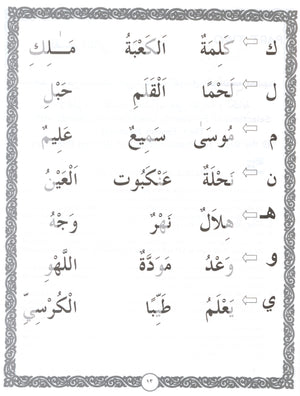 ك ⇦ كَلِمَةٌ الكَعْبَةُ مَـٰلِكِ
ل ⇦ لَحْمًا اَلْقَلَمِ حَبْلِ
م ⇦ مُوسَىٰ سَمِيعٌ عَلِيمٌ
ن ⇦ نَحْلَةٌ عَنْكَبُوت اَلْعَيْنُ
هـ ⇦ هِلَالٌ نَهْرٌ وَجْهُ
و ⇦ وَعْدُ مَوَدَّةٌ اللَّهْوِ
ي ⇦ يَعْلَمُ طَيِّبًا الْكُرْسِيِّ
١٢